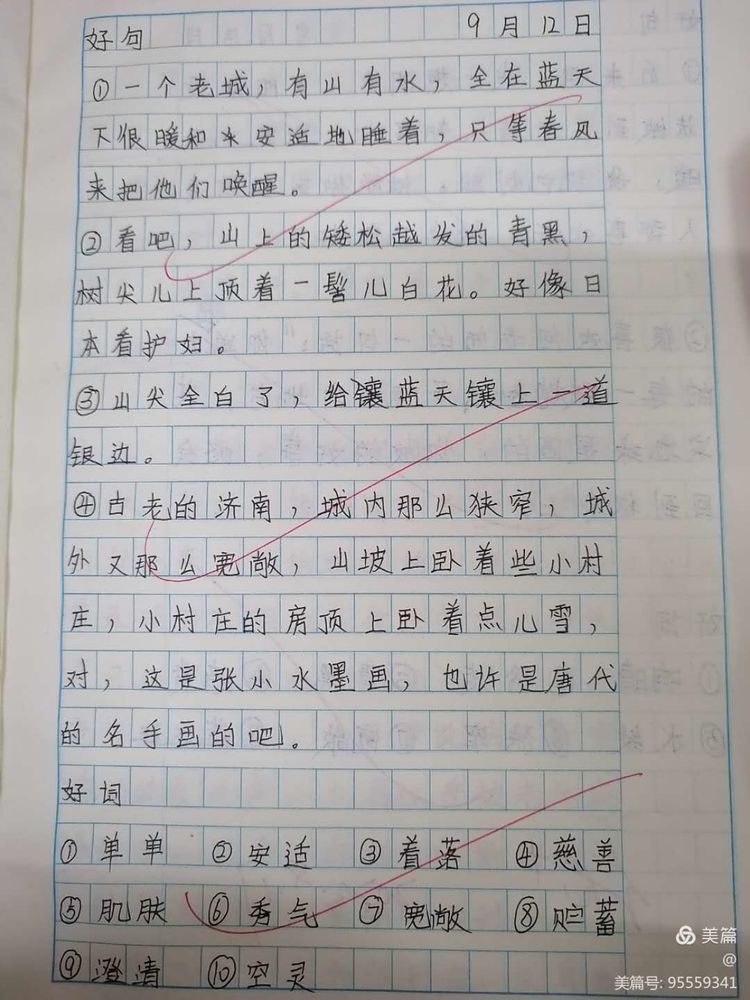 好句 9月12日
①一个老城，有山有水，全在蓝天
下很暖和安适地睡着，只等春风
来把他们唤醒。
②看吧，山上的矮松越发的青黑，
树尖儿上顶着一髻儿白花。好像日
本看护妇。
③山尖全白了，给镶蓝天镶上一道
银边。
④古老的济南，城内那么狭窄，城
外又那么宽敞，山坡上卧着些小村
庄，小村庄的房顶上卧着点儿雪，
对，这是张小水墨画，也许是唐代
的名手画的吧。
好词
①单单 ②安适 ③着落 ④慈善
⑤肌肤 ⑥秀气 ⑦宽敞 ⑧贮蓄
⑨澄清 ⑩空灵
美篇
@
美篇号: 95559341